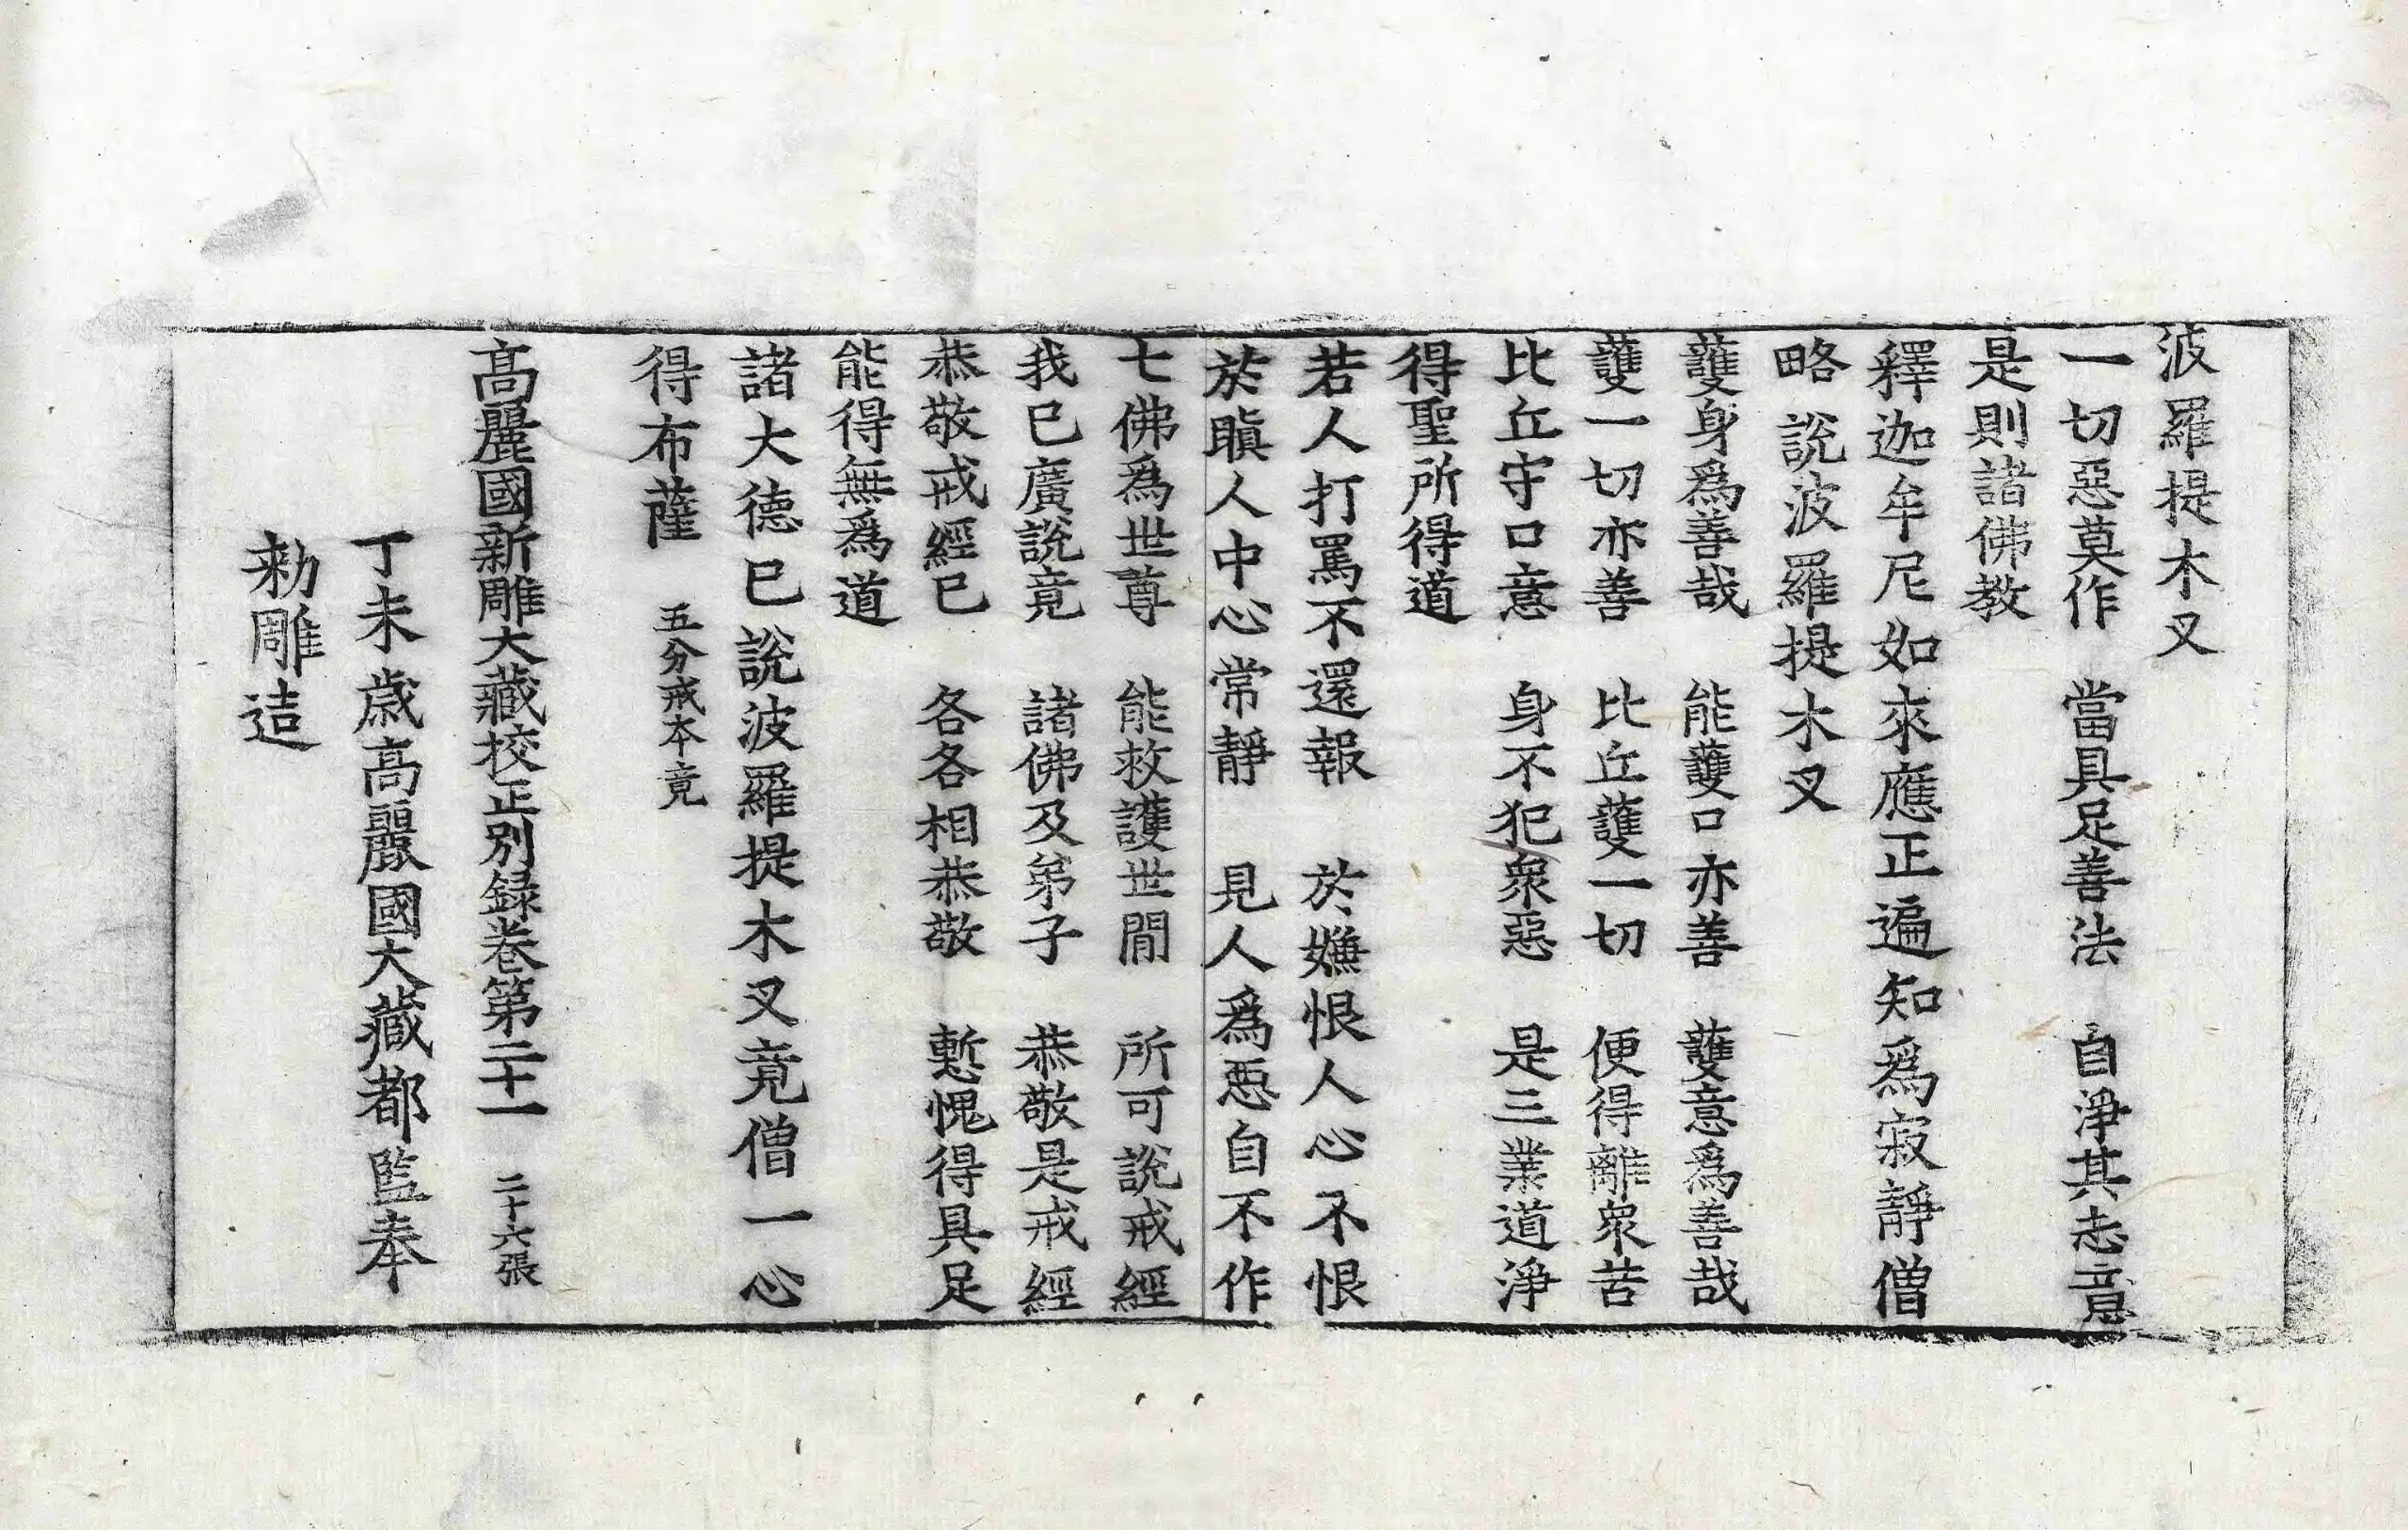 波羅提木叉
一切惡莫作　當具足善法　自淨其志意
是則諸佛教
釋迦牟尼如來應正遍知爲寂靜僧
略說波羅提木叉
護身爲善哉　能護口亦善　護意爲善哉
護一切亦善　比丘護一切　便得離衆苦
比丘守口意　身不犯衆惡　是三業道淨
得聖所得道
若人打罵不還報　於嫌恨人心不恨
於瞋人中心常靜　見人爲惡自不作
七佛爲世尊　能救護世間　所可說戒經
我已廣說竟　諸佛及弟子　恭敬是戒經
恭敬戒經已　各各相恭敬　慙愧得具足
能得無爲道
諸大德已說波羅提木叉竟僧一心
得布薩　五分戒本竟
高麗國新雕大藏校正別録卷第二十一　二十六張
丁未歲高麗國大藏都監奉
勑雕造